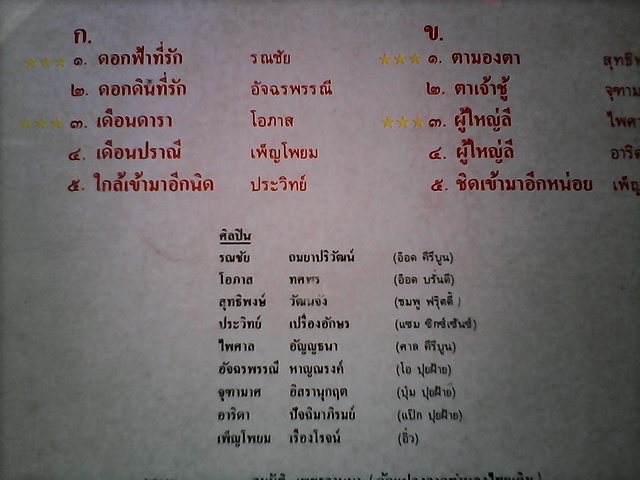 ก.
ข.
★★★ ๑. ดอกฟ้าที่รัก รณชัย
★★★ ๑. ตามองตา
๒. ดอกดินที่รัก อัจฉรพรรณี
๒. ตาเจ้าชู้
★★★ ๓. เดือนดารา โอภาส
★★★ ๓. ผู้ใหญ่ลี
๔. เดือนปราณี เพ็ญโพยม
๔. ผู้ใหญ่ลี
๕. ใกล้เข้ามาอีกนิด ประวิทย์
๕. ชิดเข้ามาอีกหน่อย
ศิลปิน
รณชัย ถมยาปริวัฒน์ (อ๊อด คีรีบูน)
โอภาส ทศพร (อ๊อด บรั่นดี)
สุทธิพงษ์ วัฒนจัง (ชมพู ฟรุ๊ตตี้)
ประวิทย์ เปรื่องอักษร (แซม ซิกซ์เซ้นซ์)
ไพศาล อัญญธนา (ศาล คีรีบูน)
อัจฉรพรรณี หาญณรงค์ (โอ ปุยฝ้าย)
จุฑามาศ อิสรานุกฤต (ปุ้ม ปุยฝ้าย)
อาริดา ปัจฉิมาภิรมย์ (แป๊ก ปุยฝ้าย)
เพ็ญโพยม เรืองโรจน์ (อิ๋ว)